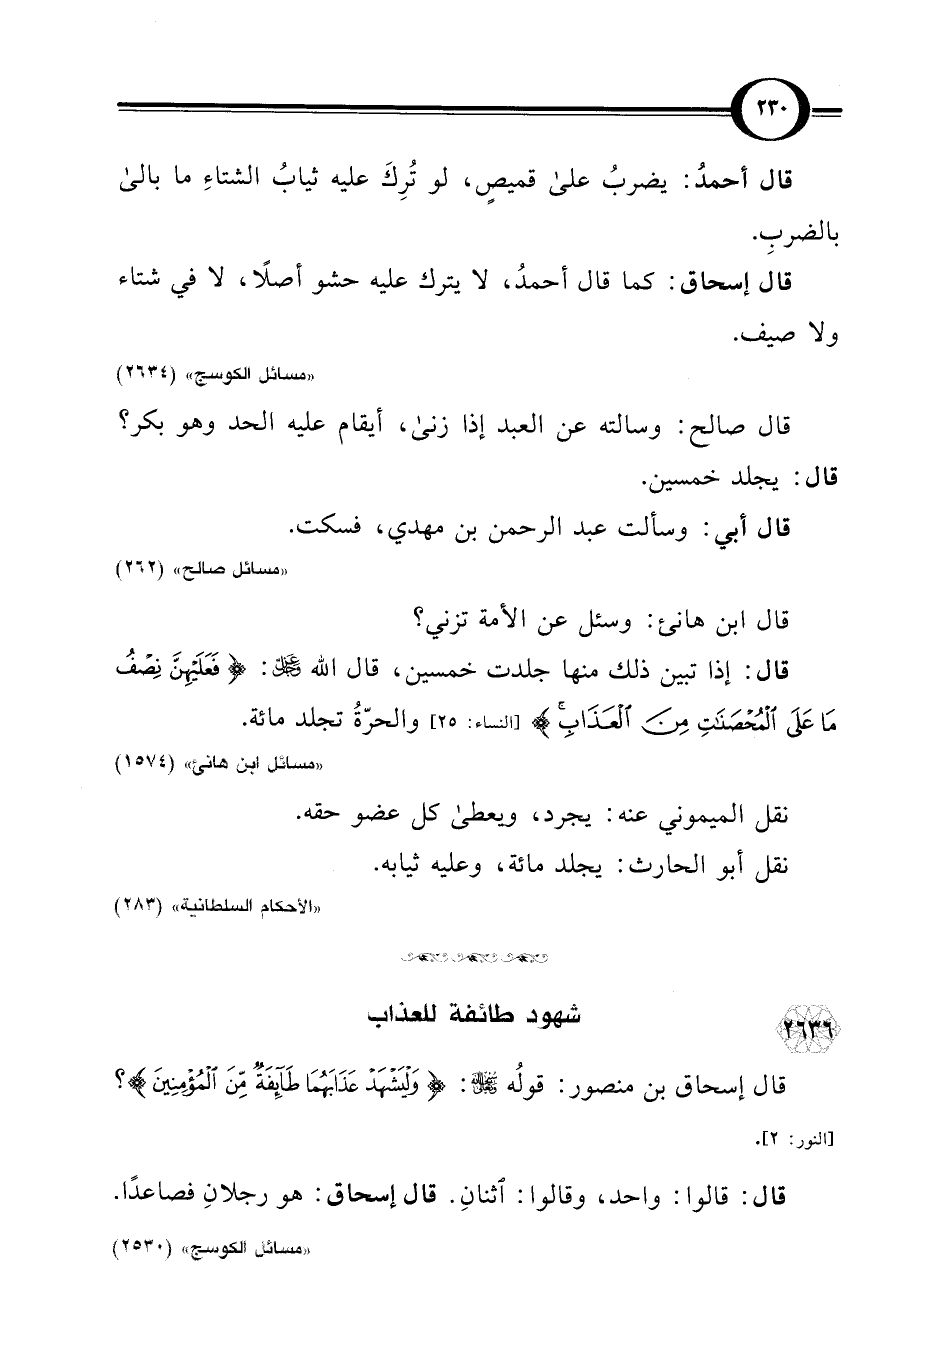 ٢٣٠
قال أحمدُ: يضربُ علىٰ قميصٍ، لو تُرِكَ عليه ثيابُ الشتاءِ ما بالىٰ
بالضربِ.
قال إسحاق: كما قال أحمدُ، لا يترك عليه حشو أصلًا، لا في شتاء
ولا صيف.
«مسائل الكوسج» (٢٦٣٤)
قال صالح: وسالته عن العبد إذا زنىٰ، أيقام عليه الحد وهو بكر؟
قال: يجلد خمسين.
قال أبي: وسألت عبد الرحمن بن مهدي، فسكت.
«مسائل صالح» (٢٦٢)
قال ابن هانئ: وسئل عن الأمة تزني؟
قال: إذا تبين ذلك منها جلدت خمسين، قال الله ﷿: ﴿ فَعَلَيْهِنَّ نِصْفُ
مَا عَلَى ٱلْمُحْصَنَٰتِ مِنَ ٱلْعَذَابِ ۚ ﴾ [النساء: ٢٥] والحرّةُ تجلد مائة.
«مسائل ابن هانئ» (١٥٧٤)
نقل الميموني عنه: يجرد، ويعطىٰ كل عضو حقه.
نقل أبو الحارث: يجلد مائة، وعليه ثيابه.
«الأحكام السلطانية» (٢٨٣)
٢٦٣٦ شهود طائفة للعذاب
قال إسحاق بن منصور: قولُه ﷾: ﴿ وَلْيَشْهَدْ عَذَابَهُمَا طَآئِفَةٌ مِّنَ ٱلْمُؤْمِنِينَ ﴾؟
[النور: ٢].
قال: قالوا: واحد، وقالوا: ٱثنانِ. قال إسحاق: هو رجلانِ فصاعدًا.
«مسائل الكوسج» (٢٥٣٠)